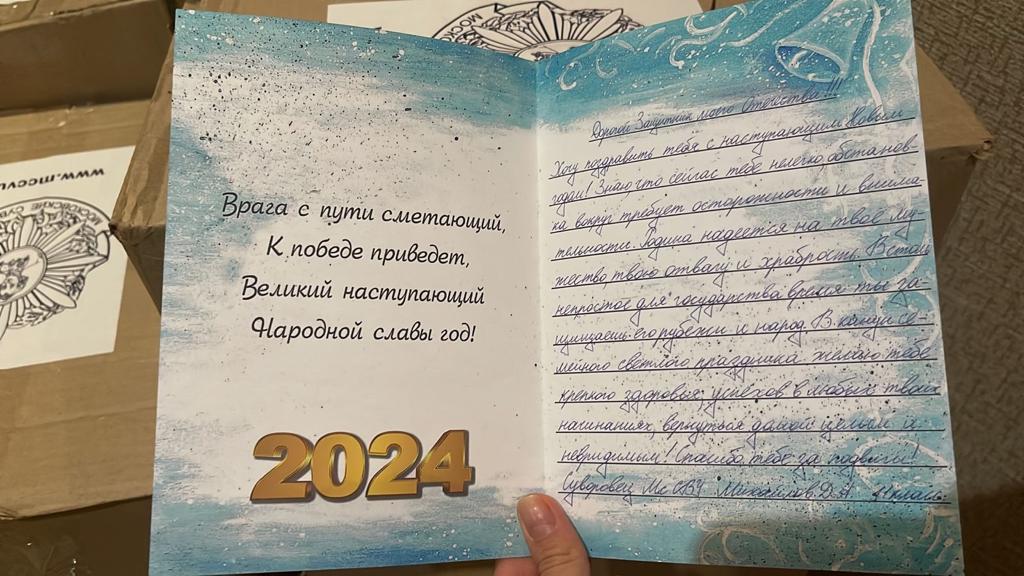 Врага с пути сметающий,
К победе приведет,
Великий наступающий
Народной славы год!
2024
Дорогой Защитник моего Отечества!!!
Хочу поздравить тебя с наступающим Новым
годом! Знаю что сейчас тебе нелегко, обстанов-
ка вокруг требует осторожности и внима-
тельности. Родина надеется на твоё му-
жество, твою отвагу и храбрость. В столь
непростое для государства время ты за-
щищаешь его рубежи и народ. В канун се-
мейного светлого праздника желаю тебе
крепкого здоровья, успехов в любых твоих
начинаниях, вернуться домой целым и
невредимым! Спасибо тебе за подвиги!
Суворовец МсСВУ Михайлов Д.А
www.mccvu